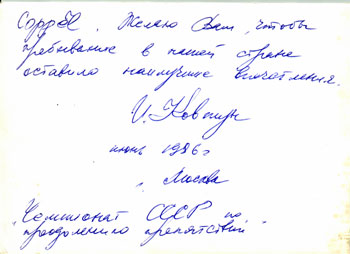 Желаю Вам, чтобы
пребывание в нашей стране
оставило наилучшие впечатления.
И.
июнь 1986 г
Москва
"Чемпионат СССР по
преодолению препятствий"